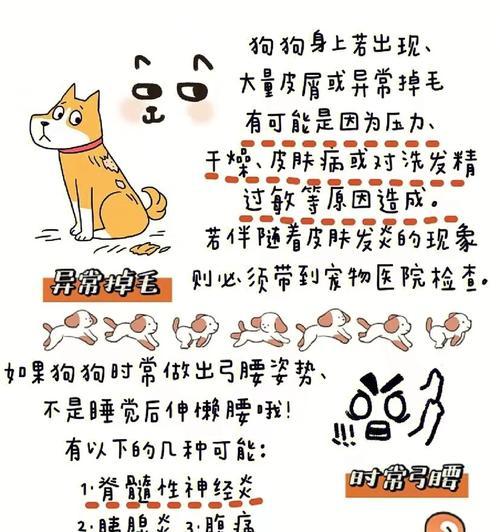 狗狗身上若出现、
大量皮屑或异常掉毛
有可能是因为压力、
干燥、皮肤病或对洗发精
过敏等原因造成。
若伴随着皮肤发炎的现象
则必须带到宠物医院检查。
异常掉毛
如果狗狗时常做出弓腰姿势、
不是睡觉后伸懒腰哦!
有以下的几种可能:
1·脊髓性神经炎
2·胰腺炎 3·腹痛
!!!
时常弓腰